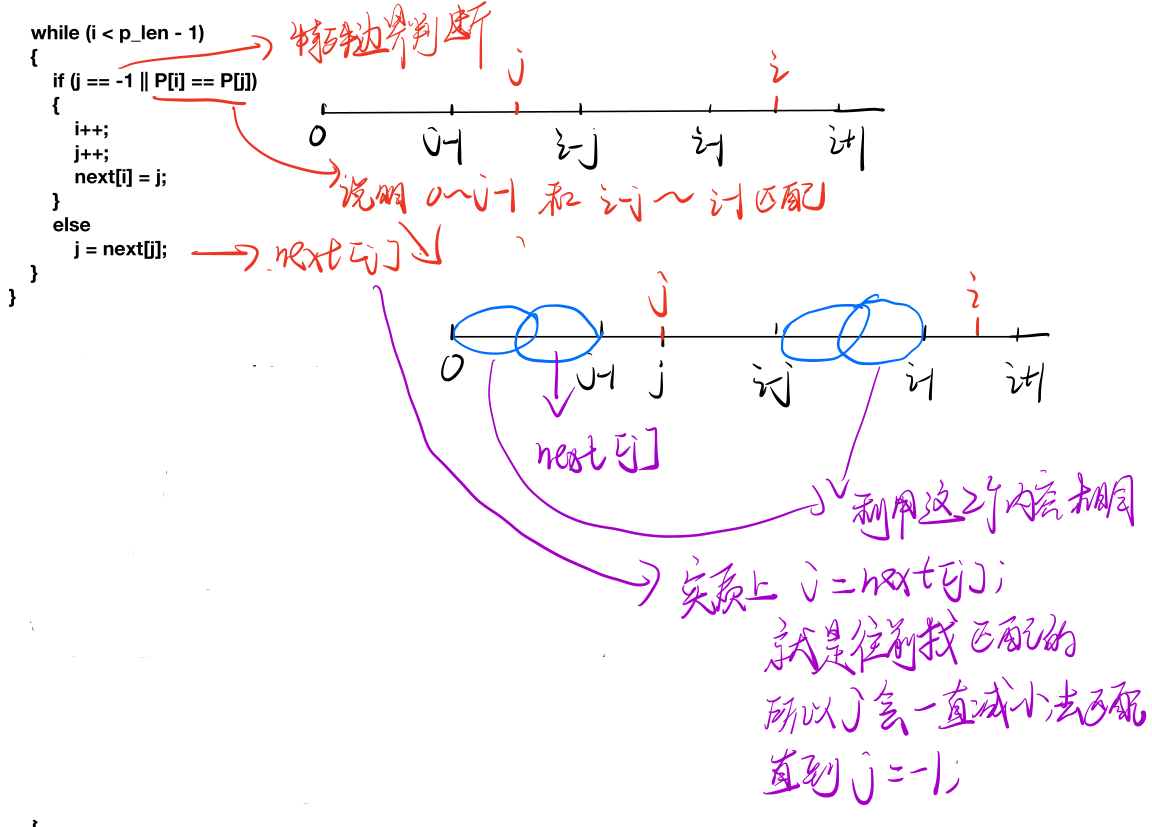 while (i < p_len - 1)
{
if (j == -1 || P[i] == P[j])
{
i++;
j++;
next[i] = j;
}
else
j = next[j];
}
}
特殊边界判断
j
i
0
j-1
i-j
i-1
i+1
说明 0～j-1 和 i-j～i-1匹配
next[j]
j
i
0
j-1
j
i-j
i-1
i+1
next[j]
利用这2个内容相同
实质上 j=next[j];
就是往前找匹配的
所以j会一直减小去匹配
直到j=-1;